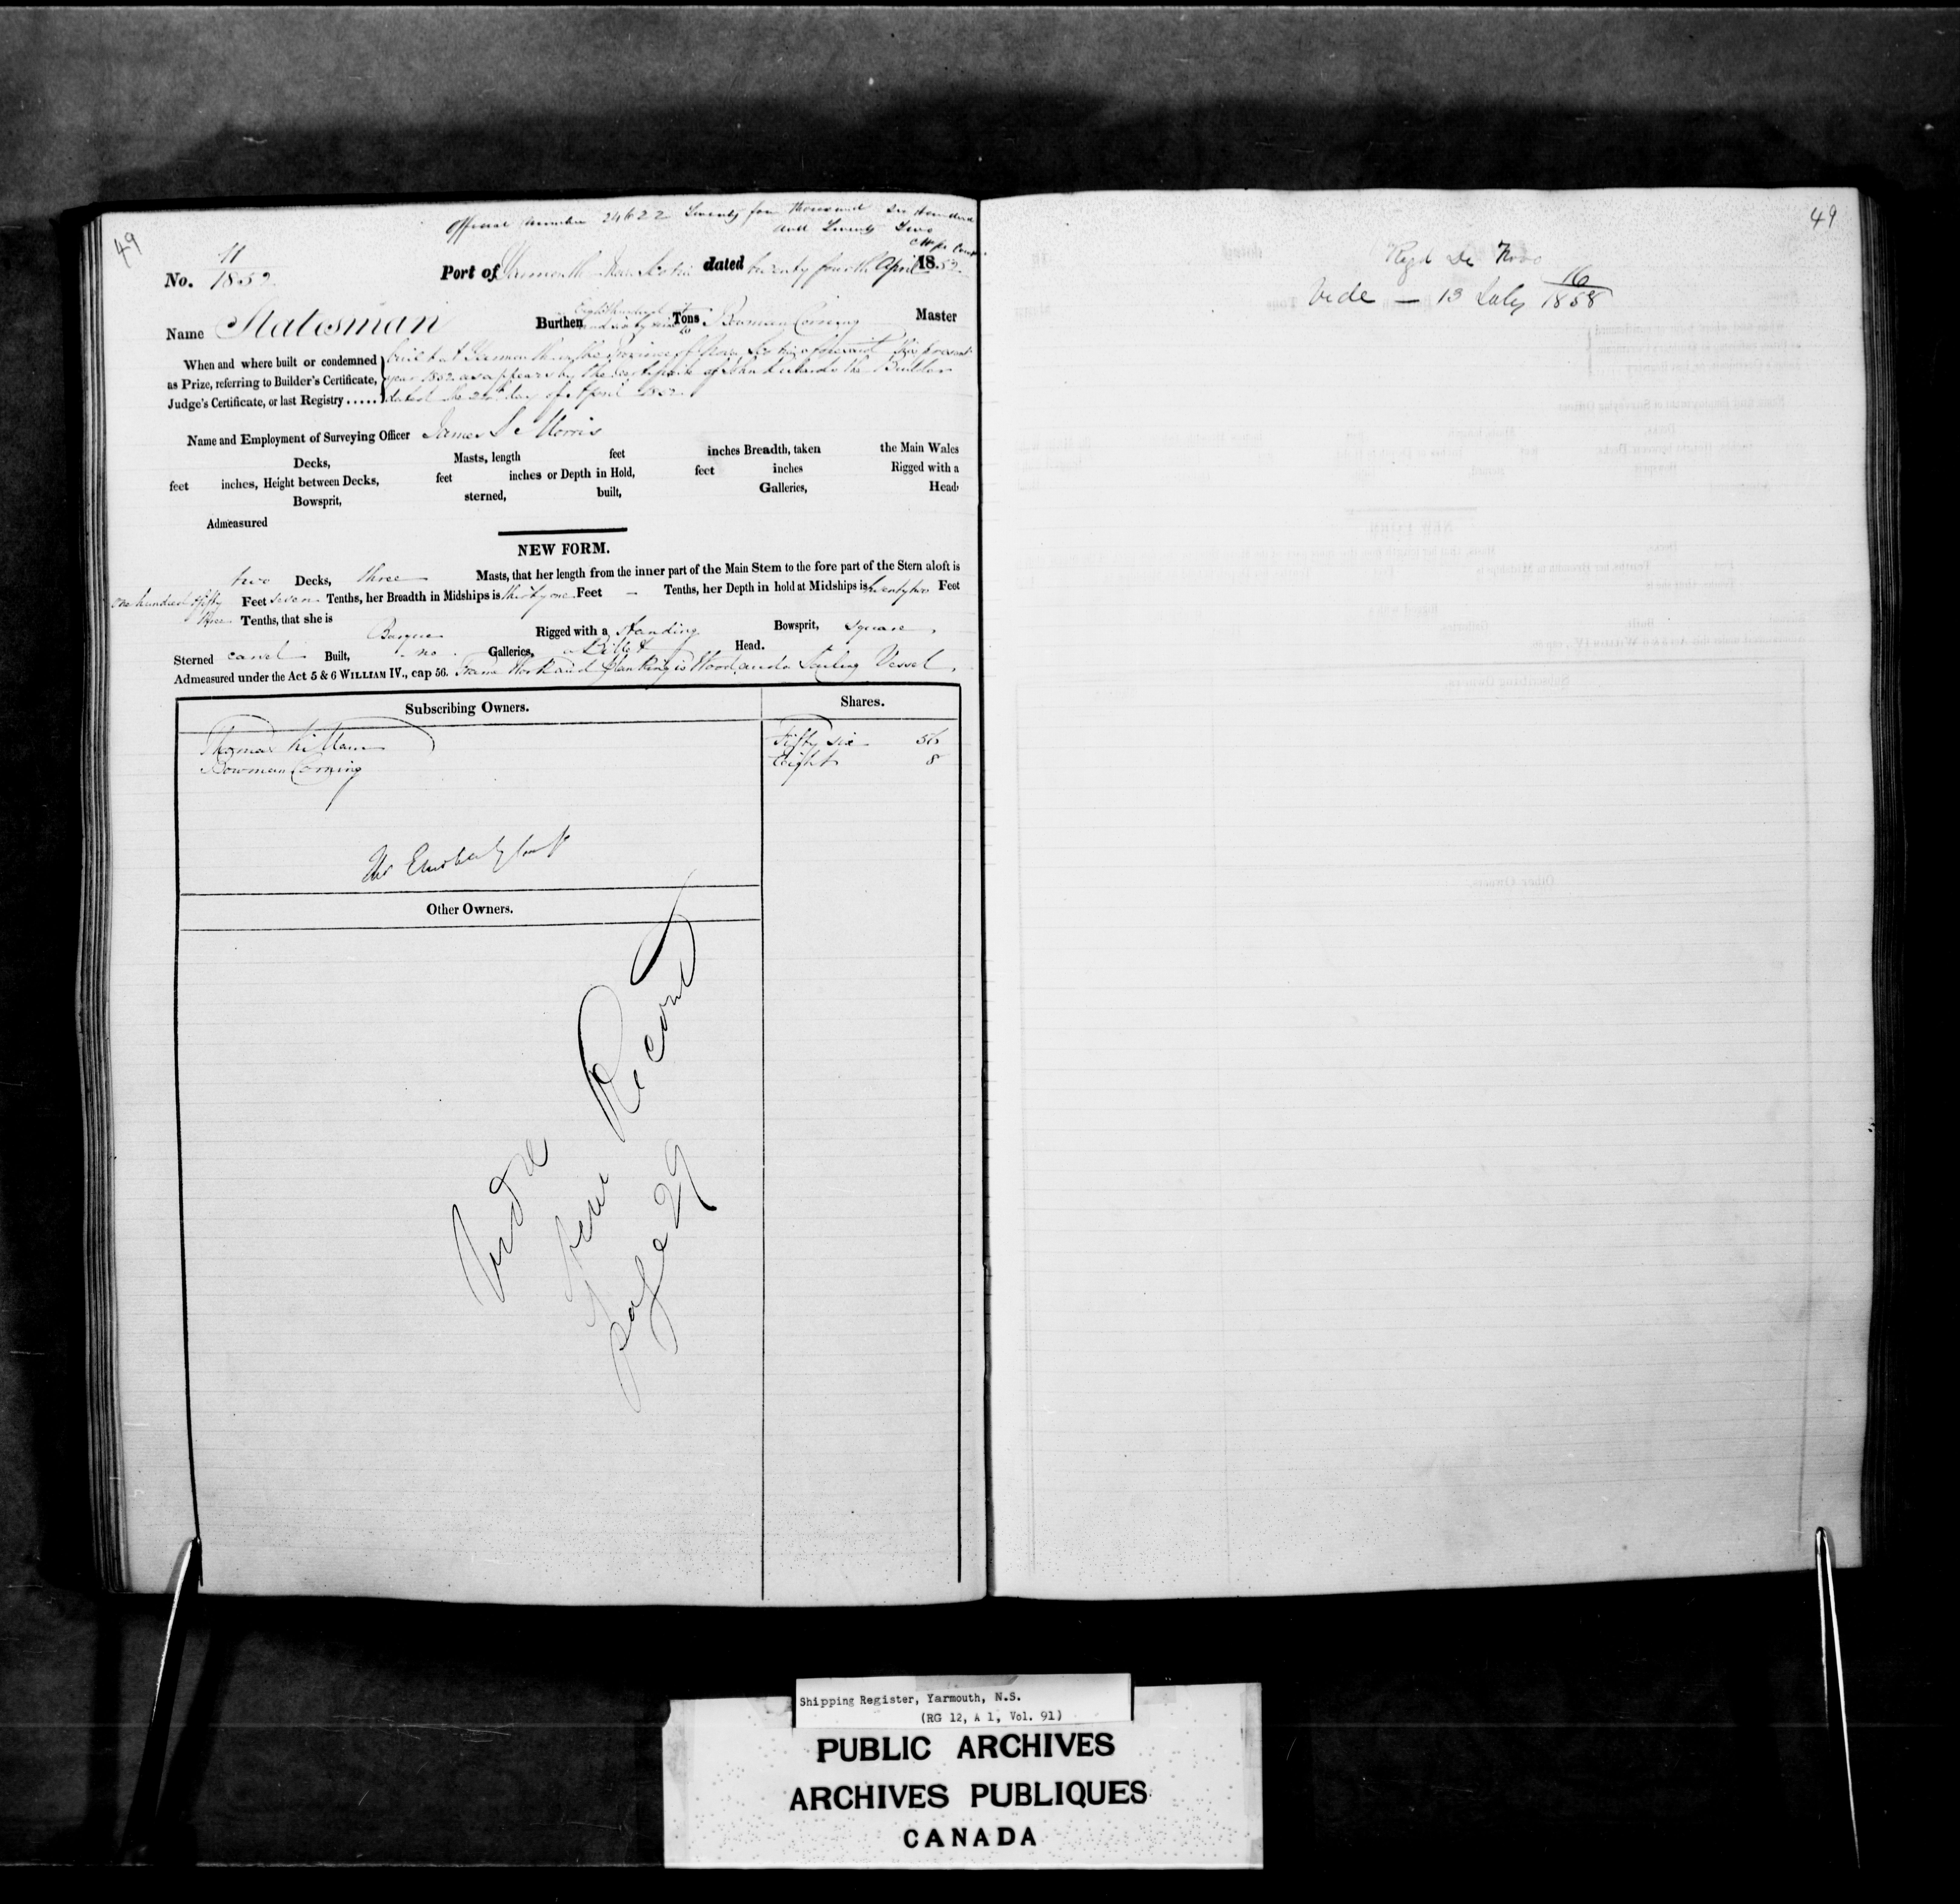 49
Official Number 24622 Twenty four thousand Six Hundred
and Twenty Two
No. 11
1852
Port of Yarmouth Nova Scotia dated twenty fourth April 1852
Name Statesman Burthen Eight hundred Tons Bowman Corning Master
When and where built or condemned
as Prize, referring to Builder's Certificate,
Judge's Certificate, or last Registry .....
built at Yarmouth in the Province of Nova Scotia aforesaid this present
year 1852 as appears by the Certificate of the Builder
dated the day of April 1852
Name and Employment of Surveying Officer James Morris
Decks, Masts, length feet inches Breadth, taken the Main Wales
feet inches, Height between Decks, feet inches or Depth in Hold, feet inches Rigged with a
Bowsprit, sterned, built, Galleries, Head,
Admeasured
NEW FORM.
two Decks, three Masts, that her length from the inner part of the Main Stem to the fore part of the Stern aloft is
One hundred & fifty Feet seven Tenths, her Breadth in Midships is thirty one Feet — Tenths, her Depth in hold at Midships is twenty two Feet
three Tenths, that she is Barque Rigged with a standing Bowsprit, square
Sterned carvel Built, no Galleries, a Billet Head.
Admeasured under the Act 5 & 6 WILLIAM IV., cap 56. Frame Work and planking is Wood and a Sailing Vessel.
Subscribing Owners. Shares.
Thomas Killam Fifty six 56
Bowman Corning Eight 8
Other Owners.
Vide
new Record
page 29
49
Regd De Novo
Vide — 13 July 16
1858
Shipping Register, Yarmouth, N.S.
(RG 12, A 1, Vol. 91)
PUBLIC ARCHIVES
ARCHIVES PUBLIQUES
CANADA